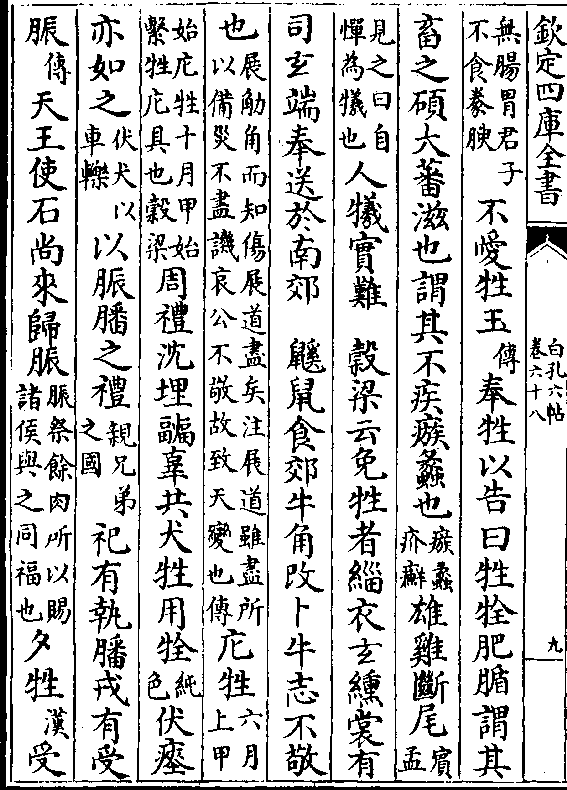 欽定四庫全書
白孔六帖
卷六十八
九
無腸胃君子
不食豢腴
不愛牲玉
傳
奉牲以告曰牲牷肥腯謂其
畜之碩大蕃滋也謂其不疾瘯蠡也
瘯蠡
疥癬
雄雞斷尾
賔
孟
見之曰自
憚為犧也
人犧實難
糓梁云免牲者緇衣玄纁裳有
司玄端奉送於南郊
鼷鼠食郊牛角改卜牛志不敬
也
展觓角而知傷展道盡矣注展道雖盡所
以備災不盡譏哀公不敬故致天變也傳
庀牲
六月
上甲
始庀牲十月甲始
繫牲庀具也糓梁
周禮沈埋疈辜共犬牲用牷
純
色
伏瘞
亦如之
伏犬以
車轢
以脤膰之禮
親兄弟
之國
祀有執膰戎有受
脤
傳
天王使石尚來歸脤
脤祭餘肉所以賜
諸侯與之同福也
夕牲
漢
受